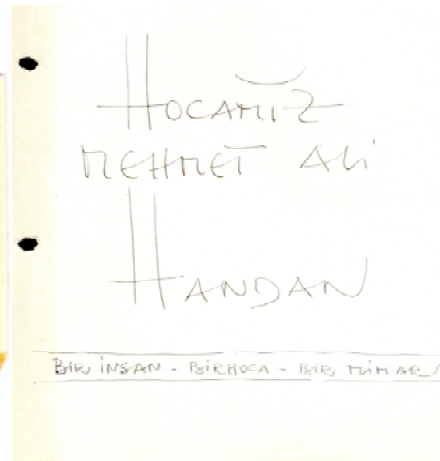 HOCAMIZ
MEHMET ALİ
HANDAN
BİR İNSAN - BİR HOCA - BİR MİMAR